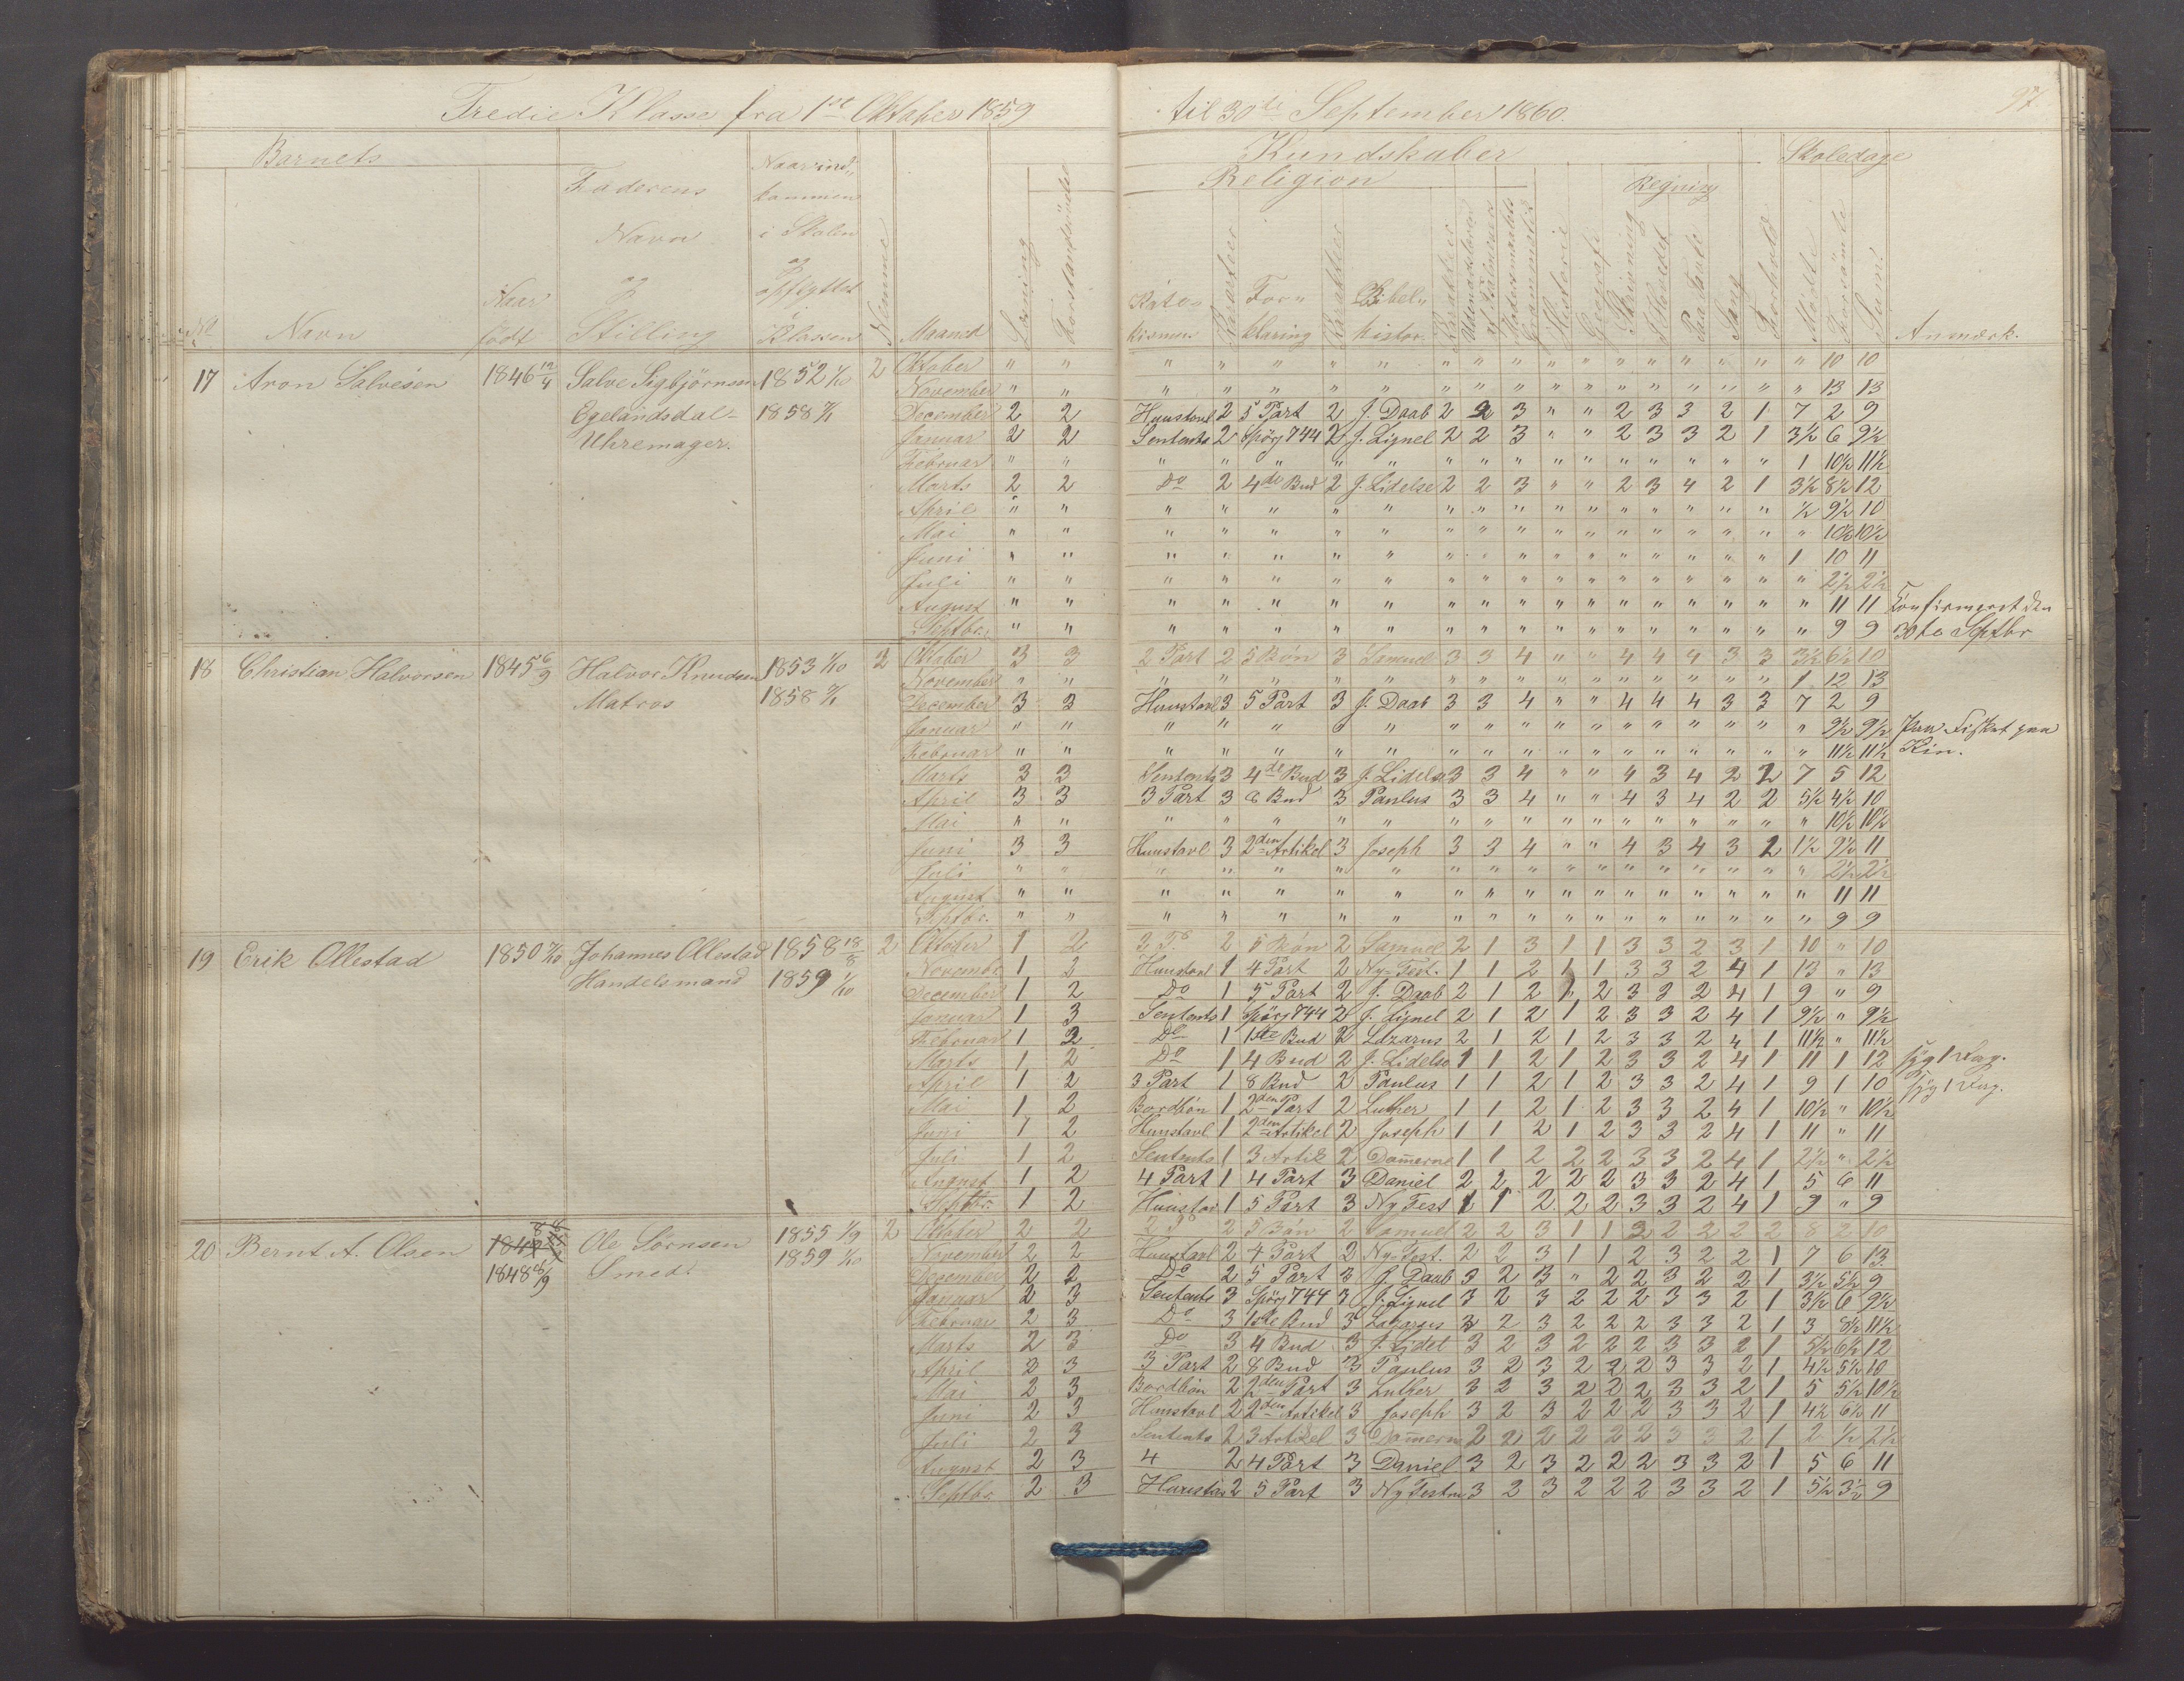 Tredie Klasse fra 1ste Oktober 1859 til 30te September 1860.
97.
Barnets
Kundskaber
Skoledage
Faderens Navn og Stilling
Naar ind- kommen i Skolen og opflyttet i Klassen
Religion
Regning
No
Navn
Naar født
Nemme
Maaned
Læsning
Forstandsøvelse
Kate- kismus
Karakter
For- klaring
Karakter
Bibel- histor.
Karakter
Modersmaalets Grammatik
Historie
Geografi
Skrivning
I Hovedet
Paa Tavle
Sang
Forhold
Mødte
Forsømte
Sum
Anmærk.
17 Aron Salvesen 1846 12/4 Salve Sigbjörnsen 1852 1/10 2 Oktober " " " " " " " " " " " " " " " " " " " 10 10
November " " " " " " " " " " " " " " " " " " " 13 13
Egelandsdal- 1858 7/1 December 2 2 Huustavl 2 5 Part 2 J. Daab 2 2 3 " " 2 3 3 2 1 7 2 9
Uhremager. Januar 2 2 Sentents 2 Spörj 744 2 J. Lignel 2 2 3 " " 2 3 3 2 1 3½ 6 9½
Februar " " " " " " " " " " " " " " " " " " 1 10½ 11½
Marts 2 2 Do 2 4de Bud 2 J. Lidelse 2 2 3 " " 2 3 4 2 1 3½ 8½ 12
April " " " " " " " " " " " " " " " " " " ½ 9½ 10
Mai " " " " " " " " " " " " " " " " " " " 10½ 10½
Juni " " " " " " " " " " " " " " " " " " 1 10 11
Juli " " " " " " " " " " " " " " " " " " " 2½ 2½
August " " " " " " " " " " " " " " " " " " " 11 11 Konfirmeret den
Septbr. " " " " " " " " " " " " " " " " " " " 9 9 30te Septbr
18 Christian Halvorsen 1845 6/9 Halvor Knudsen 1853 1/10 2 Oktober 3 3 2 Part 2 5 Bön 3 Samuel 3 3 4 " " 4 4 4 3 3 3½ 6½ 10
Matros 1858 7/1 November " " " " " " " " " " " " " " " " " " 1 12 13
December 3 3 Huustavl 3 5 Part 3 J. Daab 3 3 4 " " 4 4 4 3 3 7 2 9
Januar " " " " " " " " " " " " " " " " " " " 9½ 9½
Februar " " " " " " " " " " " " " " " " " " " 11½ 11½
Marts 3 3 Sentents 3 4de Bud 3 J. Lidelse 3 3 4 " " 4 3 4 2 2 7 5 12
April 3 3 3 Part 3 8 Bud 3 Paulus 3 3 4 " " 4 3 4 2 2 5½ 4½ 10
Mai " " " " " " " " " " " " " " " " " " " 10½ 10½
Juni 3 3 Huustavl 3 2den Artikel 3 Joseph 3 3 4 " " 4 3 4 3 2 1½ 9½ 11
Juli " " " " " " " " " " " " " " " " " " " 2½ 2½
August " " " " " " " " " " " " " " " " " " " 11 11
Septbr. " " " " " " " " " " " " " " " " " " " 9 9
19 Erik Ollestad 1850 Johannes Ollestad 1858 18/8 2 Oktober 1 2 3 P. 2 5 Bön 2 Samuel 2 1 3 1 1 3 3 2 3 1 10 " 10
Handelsmand 1859 1/10 Novembr 1 2 Huustavl 1 4 Part 2 Ny-Test. 1 1 2 1 1 3 3 2 4 1 13 " 13
December 1 2 Do 1 5 Part 2 J. Daab 2 1 2 1 2 3 3 2 4 1 9 " 9
Januar 1 3 Sentents 1 Spörj 744 2 J. Lignel 2 1 2 1 2 3 3 2 4 1 9½ " 9½
Februar 1 2 Do 1 1ste Bud 2 Lazarus 2 1 2 1 2 3 3 2 4 1 11½ " 11½
Marts 1 2 Do 1 4 Bud 2 J. Lidelse 1 1 2 1 2 3 3 2 4 1 11 1 12 syg 1 Dag.
April 1 2 3 Part 1 8 Bud 2 Paulus 1 1 2 1 2 3 3 2 4 1 9 1 10 syg 1 Dag.
Mai 1 2 Bordbön 1 2den Part 2 Luther 1 1 2 1 2 3 3 2 4 1 10½ " 10½
Juni 1 2 Huustavl 1 2den Artikel 2 Joseph 1 1 2 1 2 3 3 2 4 1 11 " 11
Juli 1 2 Sentents 1 3 Artik 2 Dom̄erne 1 1 2 2 2 3 3 2 4 1 2½ " 2½
August 1 2 4 Part 1 4 Part 3 Daniel 2 2 2 2 2 3 3 2 4 1 5 6 11
Septbr. 1 2 Huustav 1 5 Part 3 Ny Test 1 1 2 2 2 3 3 2 4 1 9 " 9
20 Bernt A. Olsen Ole Sörnsen 1855 1/9 2 Oktober 2 2 2 P 2 5 Bön 2 Samuel 2 2 3 1 1 2 2 2 2 2 8 2 10
1848 Smed. 1859 1/10 November 2 2 Huustavl 2 4 Part 2 Ny-Test. 2 2 3 1 1 2 3 2 2 1 7 6 13
December 2 2 Do 2 5 Part 3 J. Daab 3 2 3 " 2 2 3 2 2 1 3½ 5½ 9
Januar 2 3 Sentents 3 Spörj 744 3 J. Lignel 3 2 3 2 2 2 3 3 2 1 3½ 6 9½
Februar 2 3 Do 3 1ste Bud 3 Lazarus 3 2 3 2 2 2 3 3 2 1 3 8½ 11½
Marts 2 3 Do 3 4 Bud 3 J. Lidel 3 2 3 2 2 2 3 3 2 1 5½ 6½ 12
April 2 3 3 Part 2 8 Bud 3 Paulus 3 2 3 2 2 2 3 3 2 1 4½ 5½ 10
Mai 2 3 Bordbön 2 2den Part 3 Luther 3 2 3 2 2 2 3 3 2 1 5 5½ 10½
Juni 2 3 Huustavl 2 2den Artikel 3 Joseph 3 2 3 2 2 2 3 3 2 1 4½ 6½ 11
Juli 2 3 Sentents 2 3 Artikel 3 Dom̄erne 2 2 2 2 2 2 3 3 2 1 2 ½ 2½
August 2 3 4 2 4 Part 3 Daniel 3 2 3 2 2 2 3 3 2 1 5 6 11
Septbr. 2 3 Huustav 2 5 Part 3 Ny Testm 3 2 3 2 2 2 3 3 2 1 5½ 3½ 9